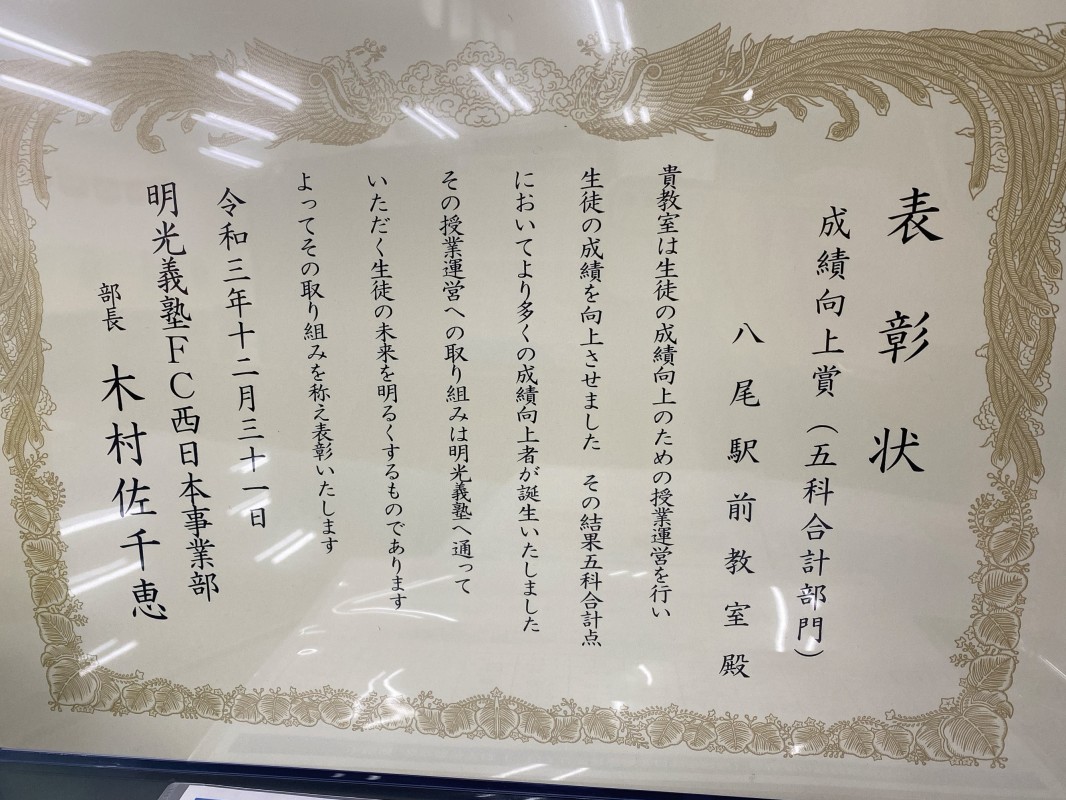 表彰状
成績向上賞(五科合計部門)
八尾駅前教室殿
貴教室は生徒の成績向上のための授業運営を行い
生徒の成績を向上させました その結果五科合計点
において より多くの成績向上者が誕生いたしました
その授業運営への取り組みは明光義塾へ通って
いただく生徒の未来を明るくするものであります
よってその取り組みを称え表彰いたします
令和三年十二月三十一日
明光義塾FC西日本事業部
部長 木村佐千恵